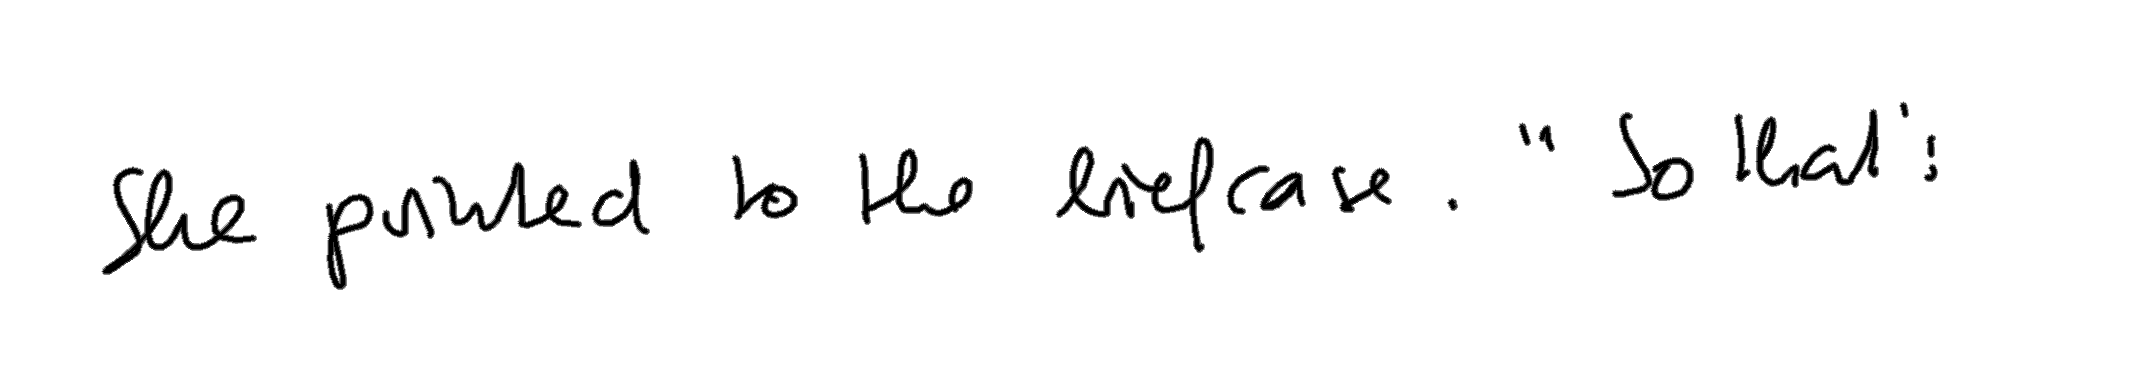 She pointed to the briefcase. "So that's